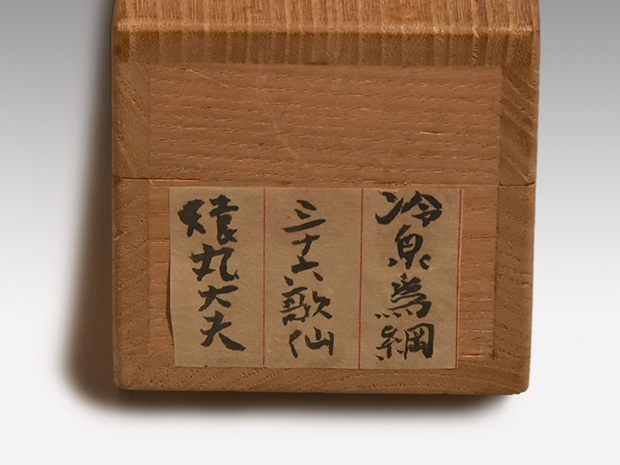 冷泉為綱
三十六歌仙
猿丸大夫